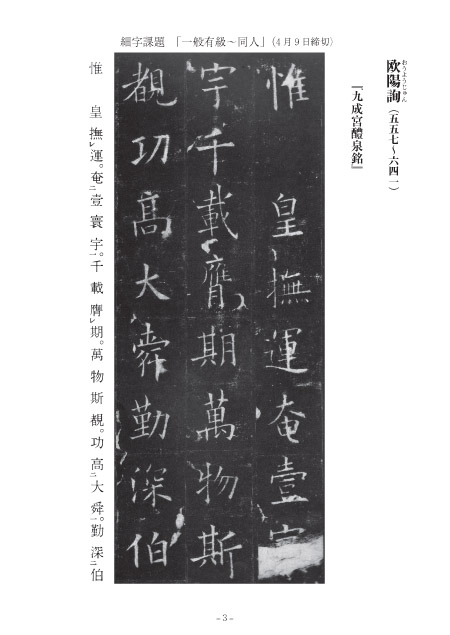 細字課題 「一般有級～同人」（4月9日締切）
おうようじゅん
欧陽詢（五五七～六四一）
『九成宮醴泉銘』
惟 皇撫運奄壹
宇千載膺期萬物斯
覩功高大舜勤深伯
惟 皇撫レ運。奄二壹寰宇一。千載膺レ期。萬物斯覩。功高二大舜一。勤深二伯
－3－